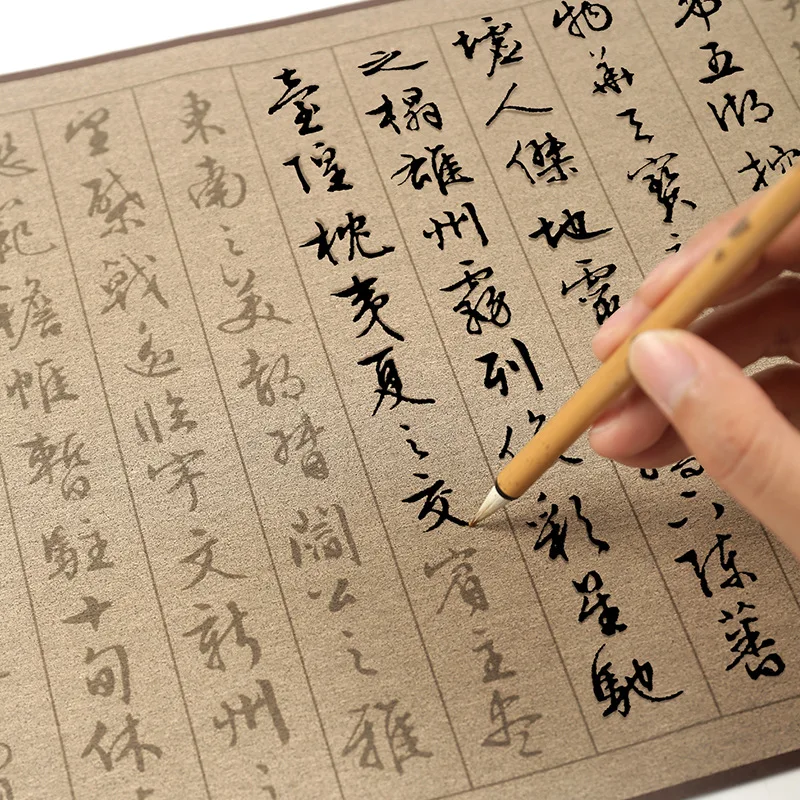 五湖控
物華天寶
墟人傑地靈孺下陳蕃
之榻雄州霧列俊彩星馳
臺隍枕夷夏之交賓主盡
東南之美都督閻公之雅
望棨戟遙臨宇文新州之
範襜帷暫駐十旬休